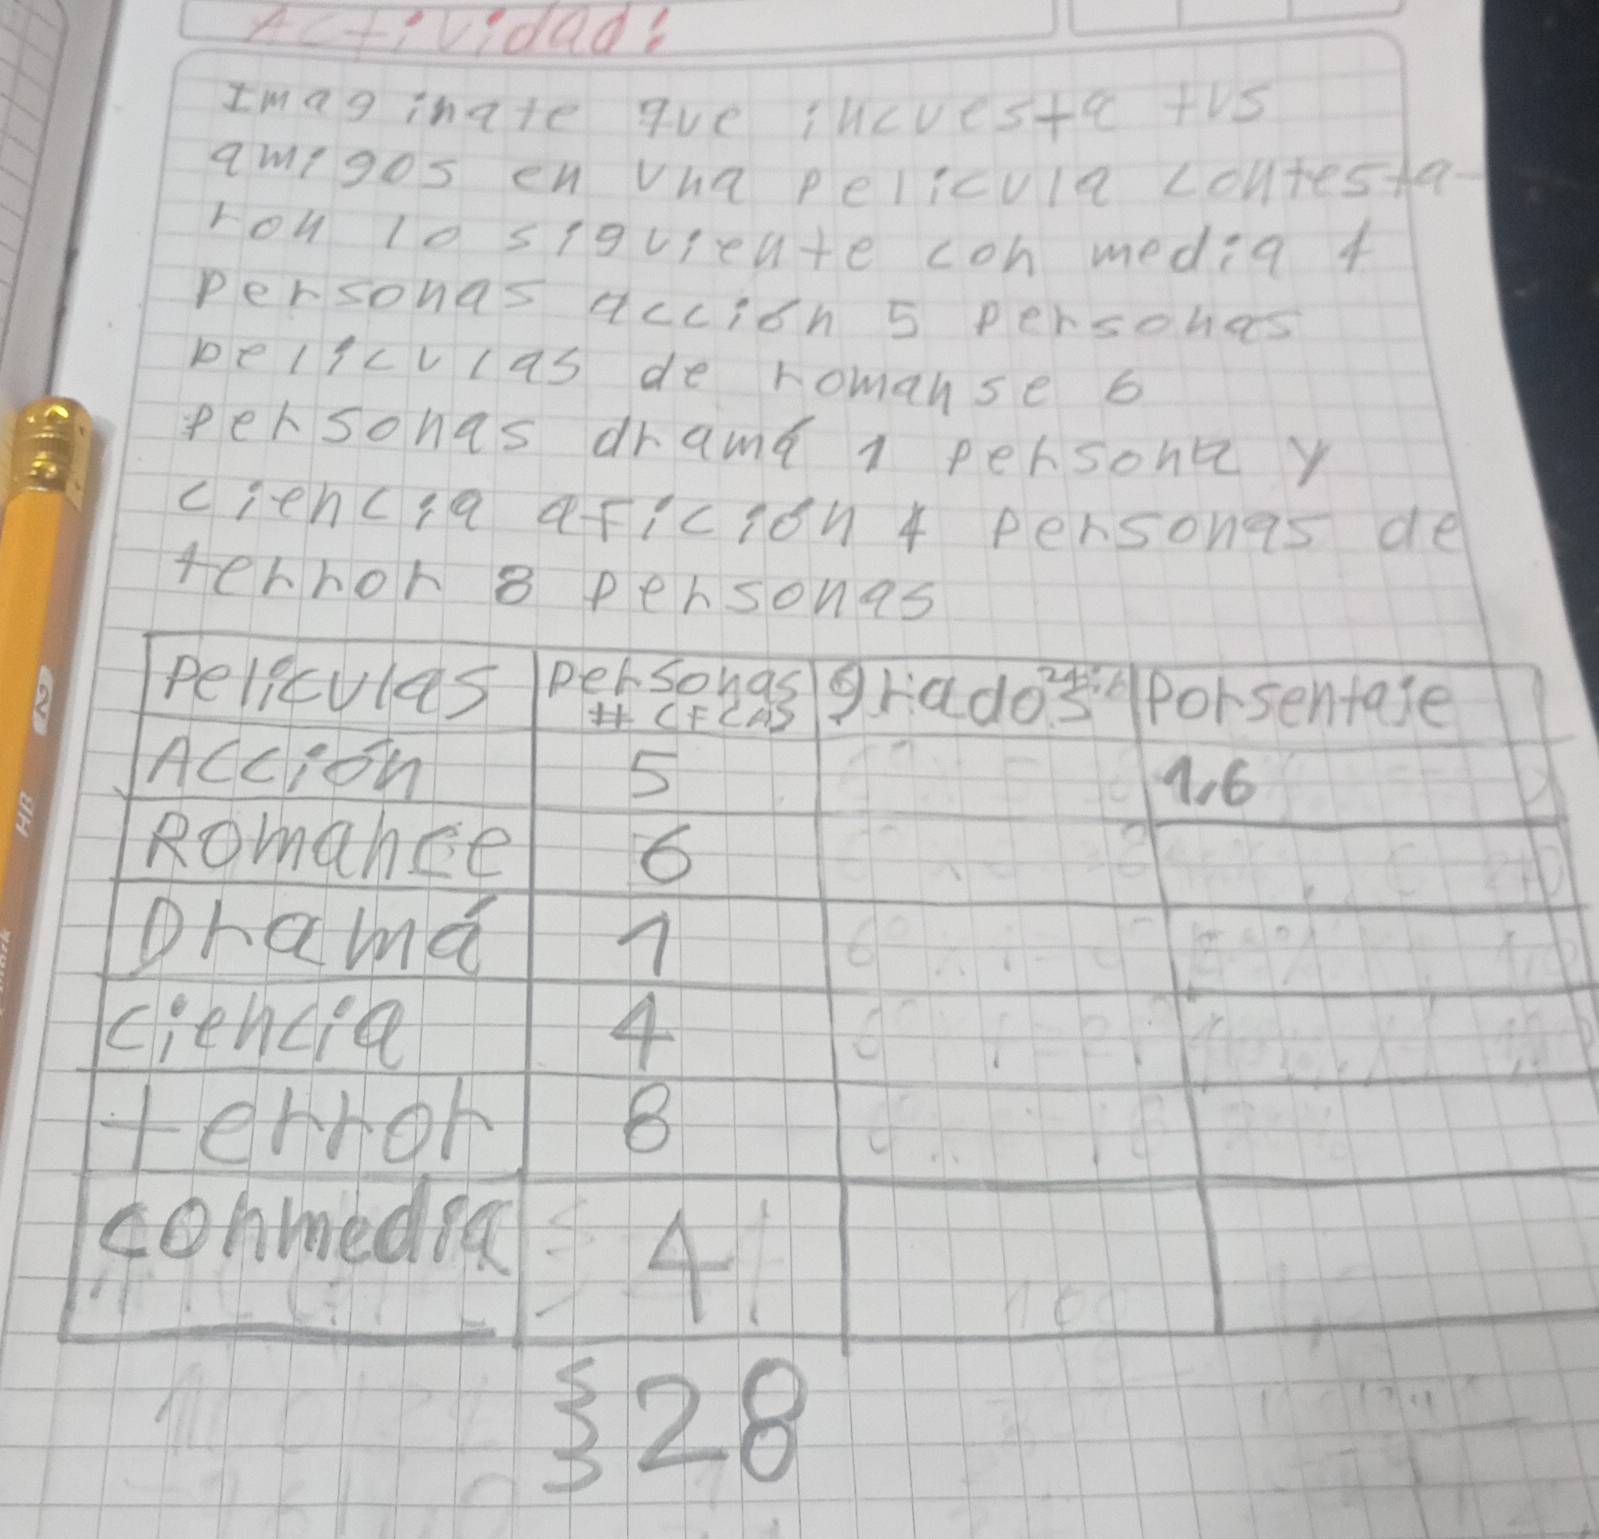 Actividad:
Imaginate que incuesta tus
amigos en una pelicula contesta-
ron lo siguiente con media 4
personas acción 5 personas
peliculas de romanse 6
personas dramá 1 persona y
ciencia afición 4 personas de
terror 8 personas
Peliculas personas grados Porsentaje
Acción 5 1,6
Romance 6
Dramá 1
ciencia 4
terror 8
conmedia 4
28
HB 2